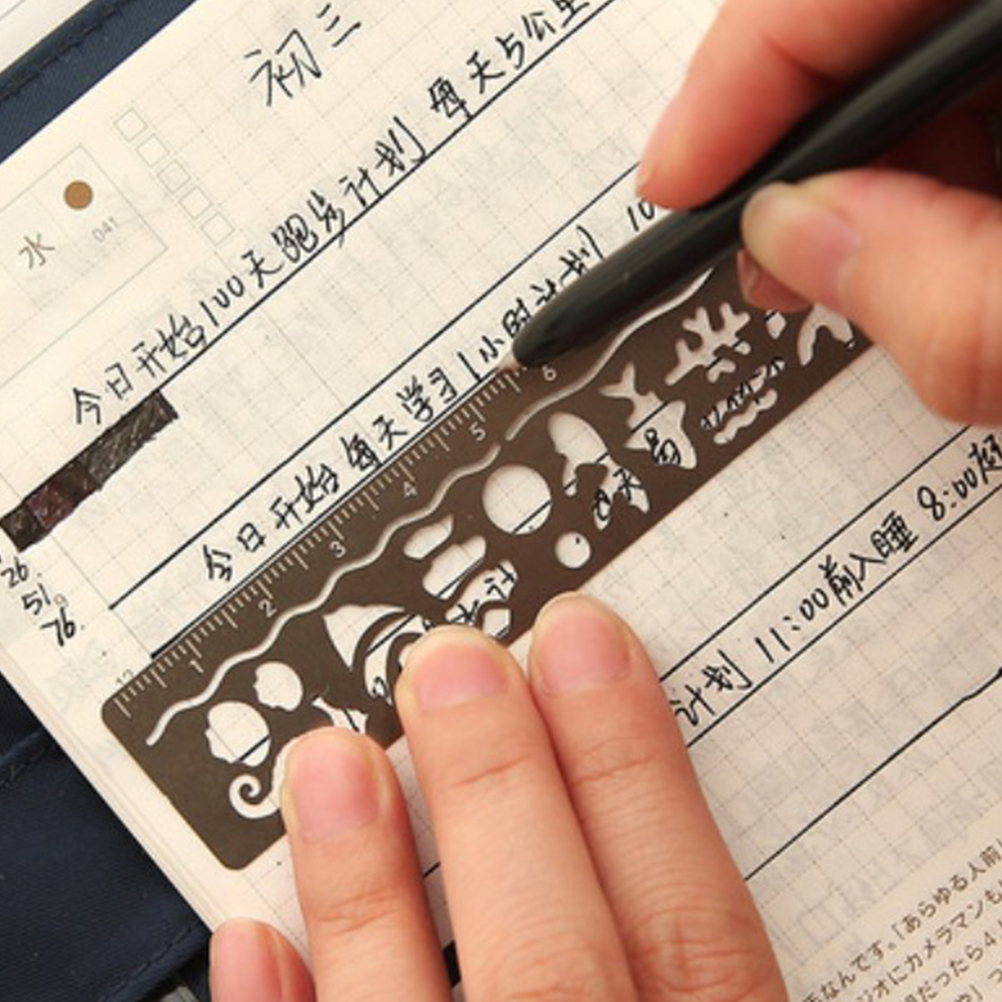 初三
水
041
今日开始100天跑步计划 每天5公里
今日开始每天学习1小时计划 10
26
51
76.
1 2 3 4 5 6
计划 11:00前入睡 8:00起
なんです。「あらゆる人前
オにカメラマンも
だったら4人